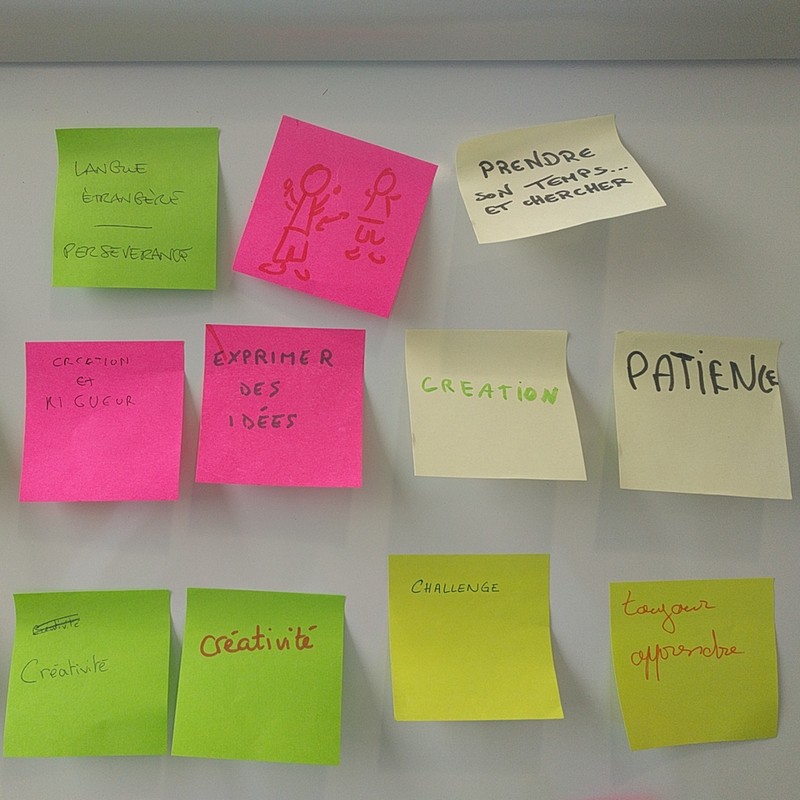 LANGUE
ÉTRANGÈRE
PERSEVERANCE
PRENDRE
SON TEMPS...
ET CHERCHER
CREATION
ET
RIGUEUR
EXPRIMER
DES
IDÉES
CREATION
PATIENCE
Créativité
Créativité
créativité
CHALLENGE
toujour
apprendre